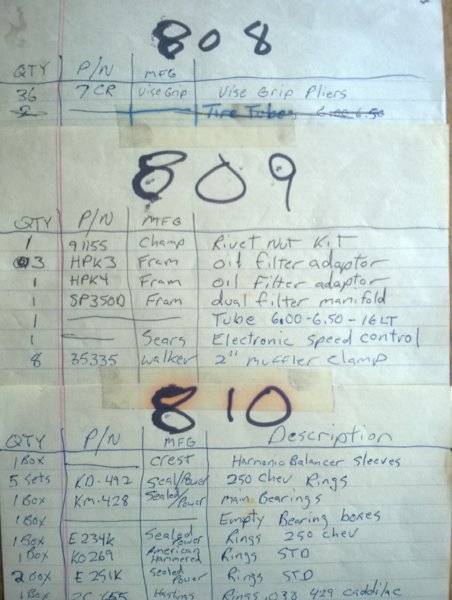 808
QTY P/N MFG
36 7CR Vise Grip Vise Grip Pliers
2 Tire Tubes 6.00-6.50
809
QTY P/N MFG
1 91155 Champ Rivet Nut Kit
3 HPK3 Fram oil filter adaptor
1 HPK4 Fram oil Filter adaptor
1 SP350D Fram dual filter manifold
1 Tube 6.00-6.50-16LT
1 Sears Electronic speed control
8 35335 Walker 2" muffler clamp
810
QTY P/N MFG Description
1 Box Crest Harmonic Balancer Sleeves
5 sets KD-492 Seal/Power 250 Chev Rings
1 Box KM-428 Sealed/Power Main Bearings
1 Box Empty Bearing boxes
1 Box E234K Sealed Power Rings 250 chev
1 Box KO269 American Hammered Rings STD
2 Box E251K Sealed Power Rings STD
1 Box Hastings Rings .038 429 caddilac